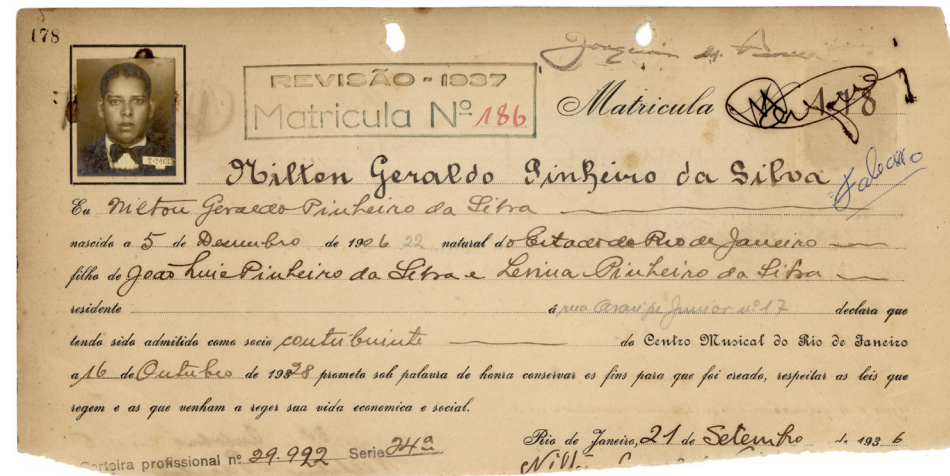 178
REVISÃO - 1937
Matricula Nº 186
Matricula 178
Nilton Geraldo Pinheiro da Silva
Falecido
Eu Nilton Geraldo Pinheiro da Silva
nascido a 5 de Dezembro de 1906 22 natural do Estado do Rio de Janeiro
filho de João Luiz Pinheiro da Silva e Lenina Pinheiro da Silva
residente á rua Araripe Junior nº 17 declara que
tendo sido admitido como socio contribuinte do Centro Musical do Rio de Janeiro
a 16 de Outubro de 1928 prometo sob palavra de honra conservar os fins para que foi creado, respeitar as leis que
regem e as que venham a reger sua vida economica e social.
Rio de Janeiro, 21 de Setembro de 1936
Carteira profissional nº 29.992 Serie 24ª